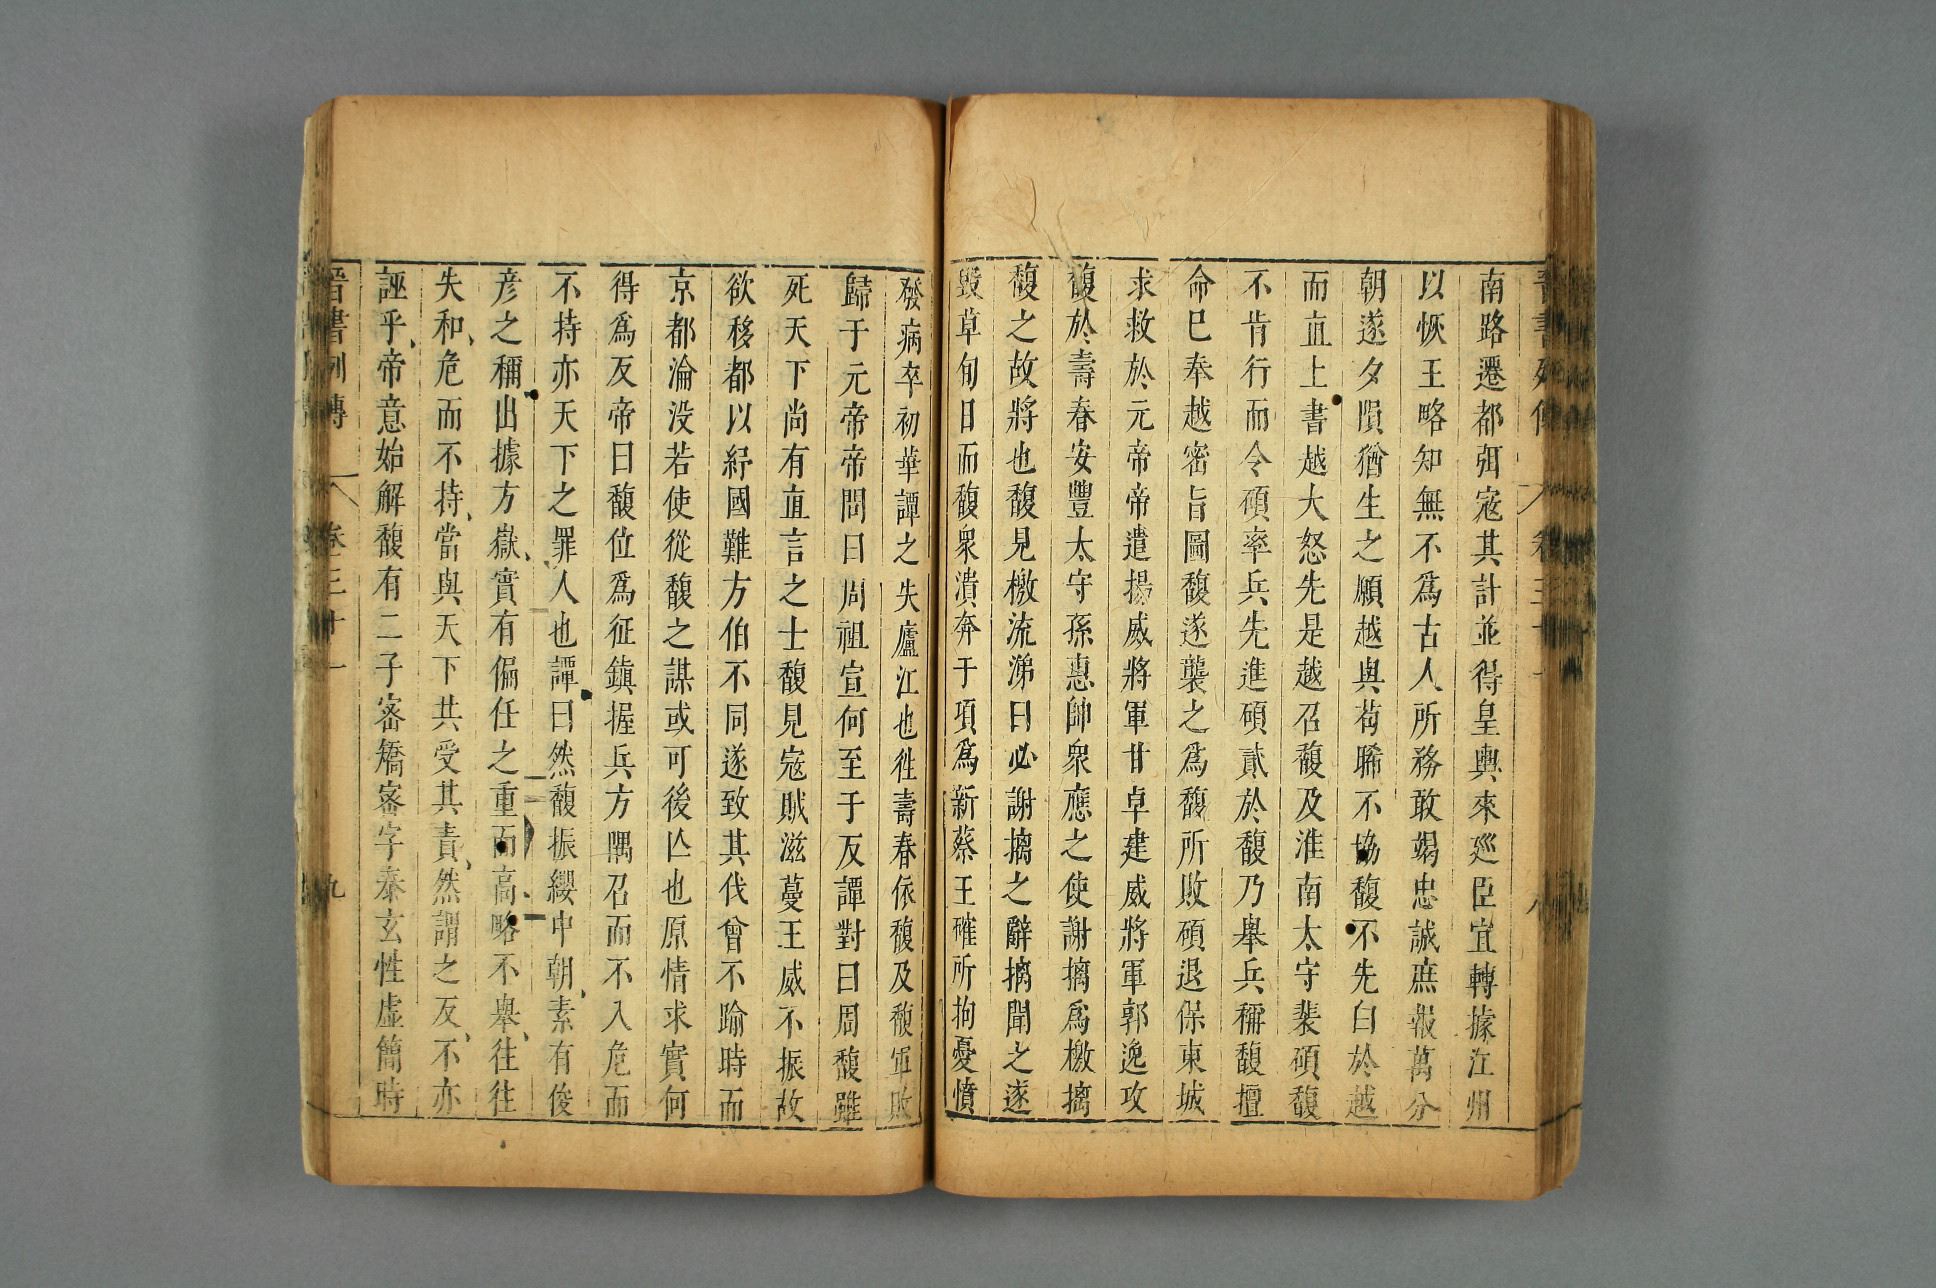 晉書列傳 卷三十一 八
南路遷都弭寇其計並得皇輿來廵臣宜轉據江州
以恢王略知無不爲古人所務敢竭忠誠庶報萬分
朝遂夕隕猶生之願越與苟晞不協馥不先白於越
而直上書越大怒先是越召馥及淮南太守裴碩馥
不肯行而令碩率兵先進碩貳於馥乃舉兵稱馥擅
命巳奉越密旨圖馥遂襲之爲馥所敗碩退保東城
求救於元帝帝遣揚威將軍甘卓建威將軍郭逸攻
馥於壽春安豐太守孫惠帥衆應之使謝摛爲檄摛
馥之故將也馥見檄流涕曰必謝摛之辭摛聞之遂
毀草旬日而馥衆潰奔于項爲新蔡王確所拘憂憤
發病卒初華譚之失廬江也徃壽春依馥及馥軍敗
歸于元帝帝問曰周祖宣何至于反譚對曰周馥雖
死天下尚有直言之士馥見寇賊滋蔓王威不振故
欲移都以紓國難方伯不同遂致其伐曾不踰時而
京都淪没若使從馥之謀或可後亾也原情求實何
得爲反帝曰馥位爲征鎮握兵方隅召而不入危而
不持亦天下之罪人也譚曰然馥振纓中朝素有俊
彦之稱出據方嶽實有偏任之重而高略不舉往往
失和危而不持當與天下共受其責然謂之反不亦
誣乎帝意始解馥有二子密矯密字泰玄性虛簡時
晉書列傳 卷三十一 九